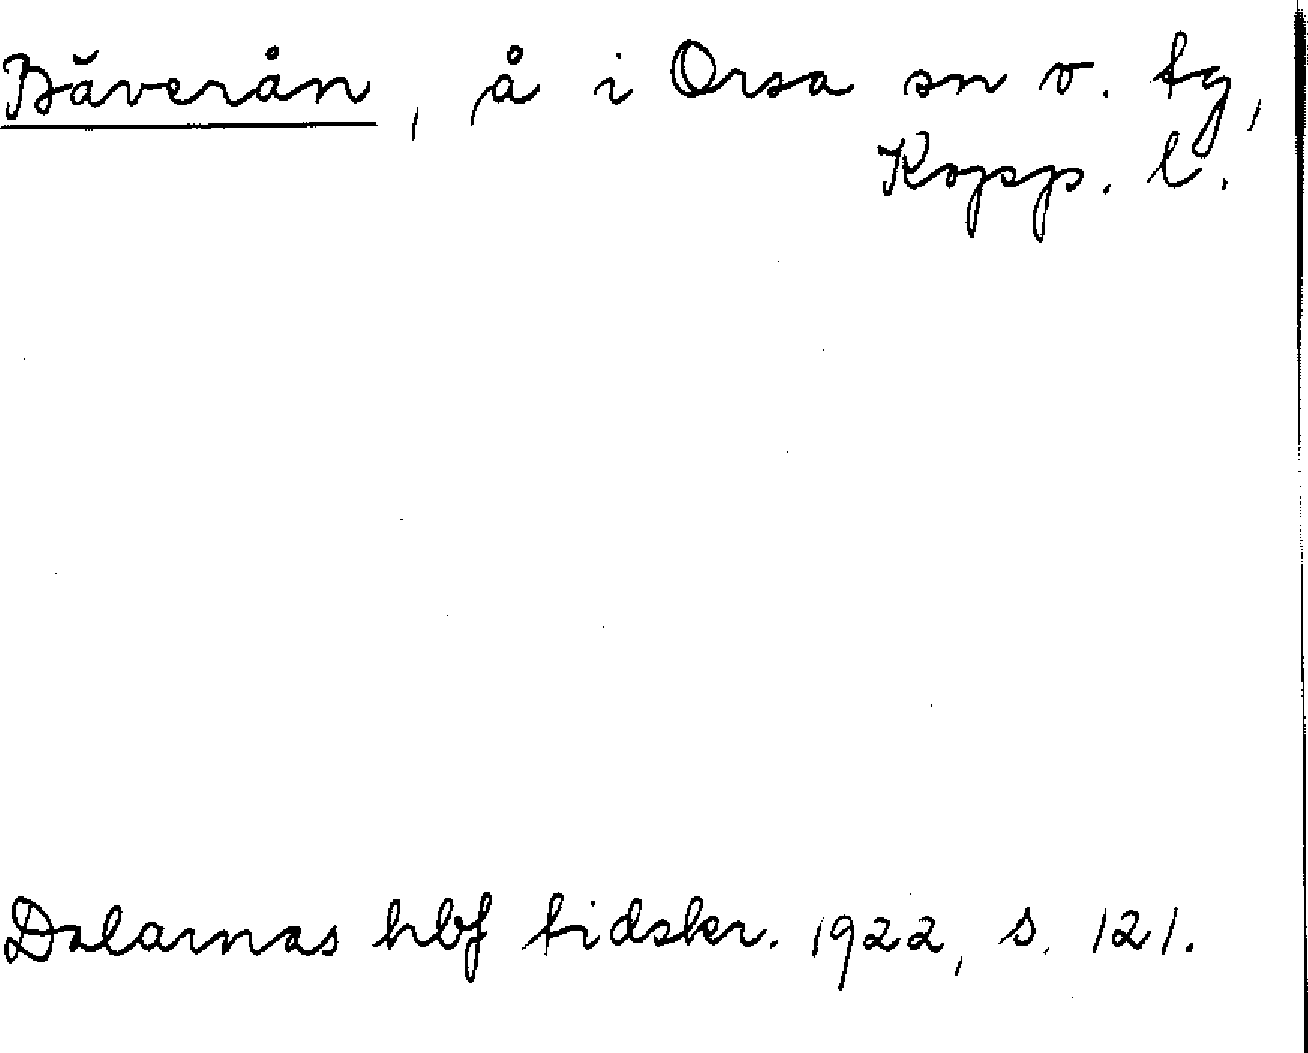 Bäverån, å i Orsa sn o. tg,
Kopp. l.
Dalarnas hbf tidskr. 1922, s. 121.